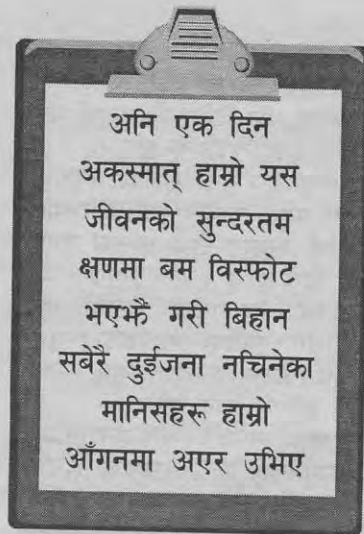 अनि एक दिन
अकस्मात् हाम्रो यस
जीवनको सुन्दरतम
क्षणमा बम विस्फोट
भएझैँ गरी बिहान
सबेरै दुईजना नचिनेका
मानिसहरू हाम्रो
आँगनमा अएर उभिए